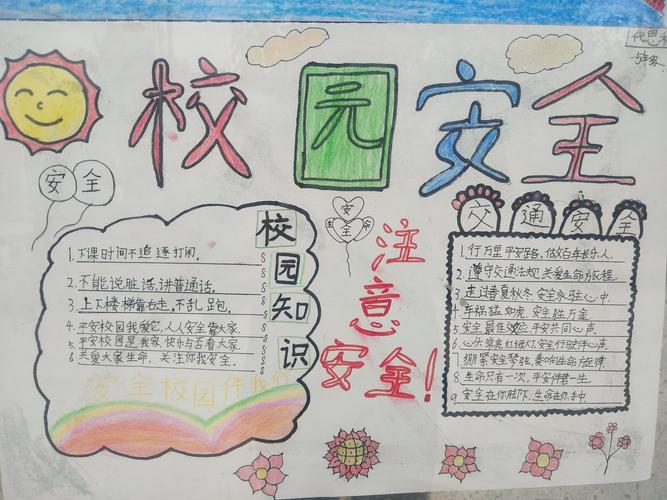 校园安全
安全
校园知识
1.下课时间不追逐打闹。
2.不能说脏话,讲普通话。
3.上下楼梯靠右走,不乱跑。
4.平安校园我爱它,人人安全靠大家
5.平安校园是我家,快乐与否看大家.
6.关爱大家生命,关注你我安全。
安全校园伴我行
安全
注意安全!
交通安全
1.行万里平安路,做百年长乐人.
2.遵守交通法规,关爱生命旅程.
3.走过春夏秋冬,安全永驻心中.
4.车祸猛如虎,安全胜万金.
5.安全最佳 平安共同心声.
6.心头常亮红绿灯,安全行驶伴心声
7.绷紧安全琴弦,奏响生命旋律.
8.生命只有一次,平安伴君一生.
9.安全在你脚下,生命在你手中.